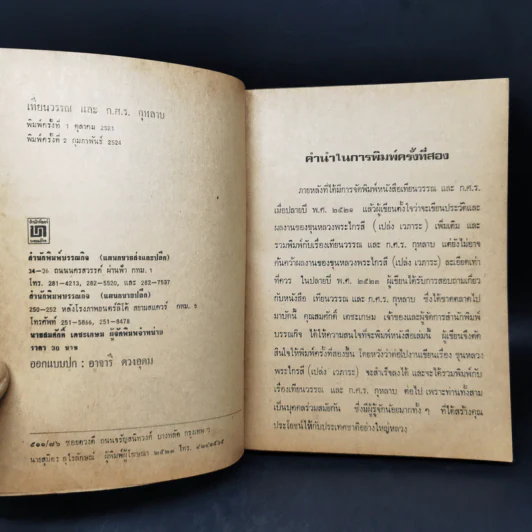 เทียนวรรณ และ ก.ศ.ร. กุหลาบ
พิมพ์ครั้งที่ 1 ตุลาคม 2521
พิมพ์ครั้งที่ 2 กุมภาพันธ์ 2524
สำนักพิมพ์บรรณกิจ (แผนกขายส่งและปลีก)
34-36 ถนนนครสวรรค์ ผ่านฟ้า กทม. 1
โทร. 281-4213, 282-5520, และ 282-7537
สำนักพิมพ์บรรณกิจ (แผนกขายปลีก)
250-252 หลังโรงภาพยนตร์ลิโด้ สยามสแควร์ กทม. 5
โทรศัพท์ 251-5866, 251-8478
นายสมศักดิ์ เตชะเกษม ผู้จัดพิมพ์จำหน่าย
ราคา 30 บาท
ออกแบบปก : อาจารี ดวงอุดม
๕๑๑/๘๖ ซอยดวงดี ถนนจรัญสนิทวงศ์ บางพลัด กรุงเทพ ฯ
นายสุมิตร ๒๕๒๓ โทร.
คำนำในการพิมพ์ครั้งที่สอง
ภายหลังที่ได้มีการจัดพิมพ์หนังสือเทียนวรรณ และ ก.ศ.ร.
เมื่อปลายปี พ.ศ. ๒๕๒๑ แล้วผู้เขียนตั้งใจว่าจะเขียนประวัติและ
ผลงานของขุนหลวงพระไกรสี (เปล่ง เวภาระ) เพิ่มเติม และ
รวมพิมพ์กับเรื่องเทียนวรรณ และ ก.ศ.ร. กุหลาบ แต่ยังไม่อาจ
ค้นคว้าผลงานของขุนหลวงพระไกรสี (เปล่ง เวภาระ) ละเอียดเท่า
ที่ควร ในปลายปี พ.ศ. ๒๕๒๓ ผู้เขียนได้รับการสอบถามเกี่ยว
กับหนังสือ เทียนวรรณ และ ก.ศ.ร. กุหลาบ ซึ่งได้ขาดตลาดไป
มาบัดนี้ คุณสมศักดิ์ เตชะเกษม เจ้าของและผู้จัดการสำนักพิมพ์
บรรณกิจ ได้ให้ความสนใจที่จะพิมพ์หนังสือเล่มนี้ ผู้เขียนจึงตัด
สินใจให้พิมพ์ครั้งที่สองขึ้น โดยหวังว่าต่อไปงานเขียนเรื่อง ขุนหลวง
พระไกรสี (เปล่ง เวภาระ) จะสำเร็จลงได้ และจะได้รวมพิมพ์กับ
เรื่องเทียนวรรณ และ ก.ศ.ร. กุหลาบ ต่อไป เพราะท่านทั้งสาม
เป็นบุคคลร่วมสมัยกัน ซึ่งมีผู้รู้จักน้อยมากทั้ง ๆ ที่ได้สร้างคุณ
ประโยชน์ให้กับประเทศชาติอย่างใหญ่หลวง